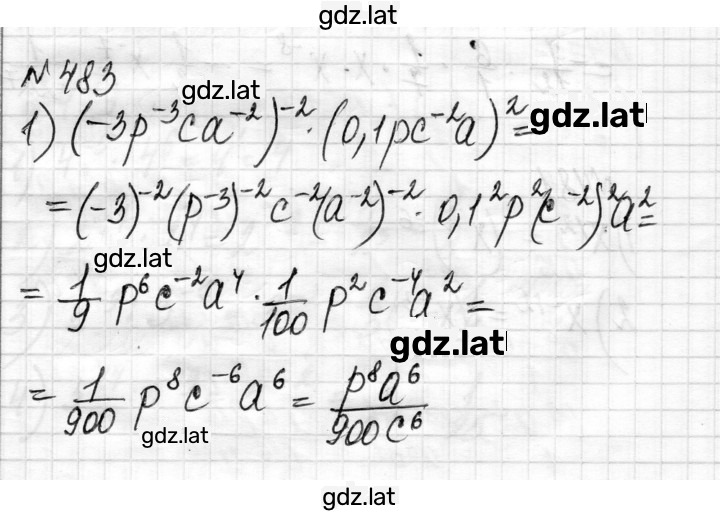 gdz.lat
№ 483
gdz.lat
1) (-3p⁻³ca⁻²)⁻² · (0,1pc⁻²a)² =
gdz.lat
= (-3)⁻²(p⁻³)⁻² c⁻²(a⁻²)⁻² · 0,1² p²(c⁻²)² a² =
gdz.lat
= 1/9 p⁶c⁻²a⁴ · 1/100 p²c⁻⁴a² =
gdz.lat
= 1/900 p⁸c⁻⁶a⁶ = p⁸a⁶/900c⁶
gdz.lat
gdz.lat